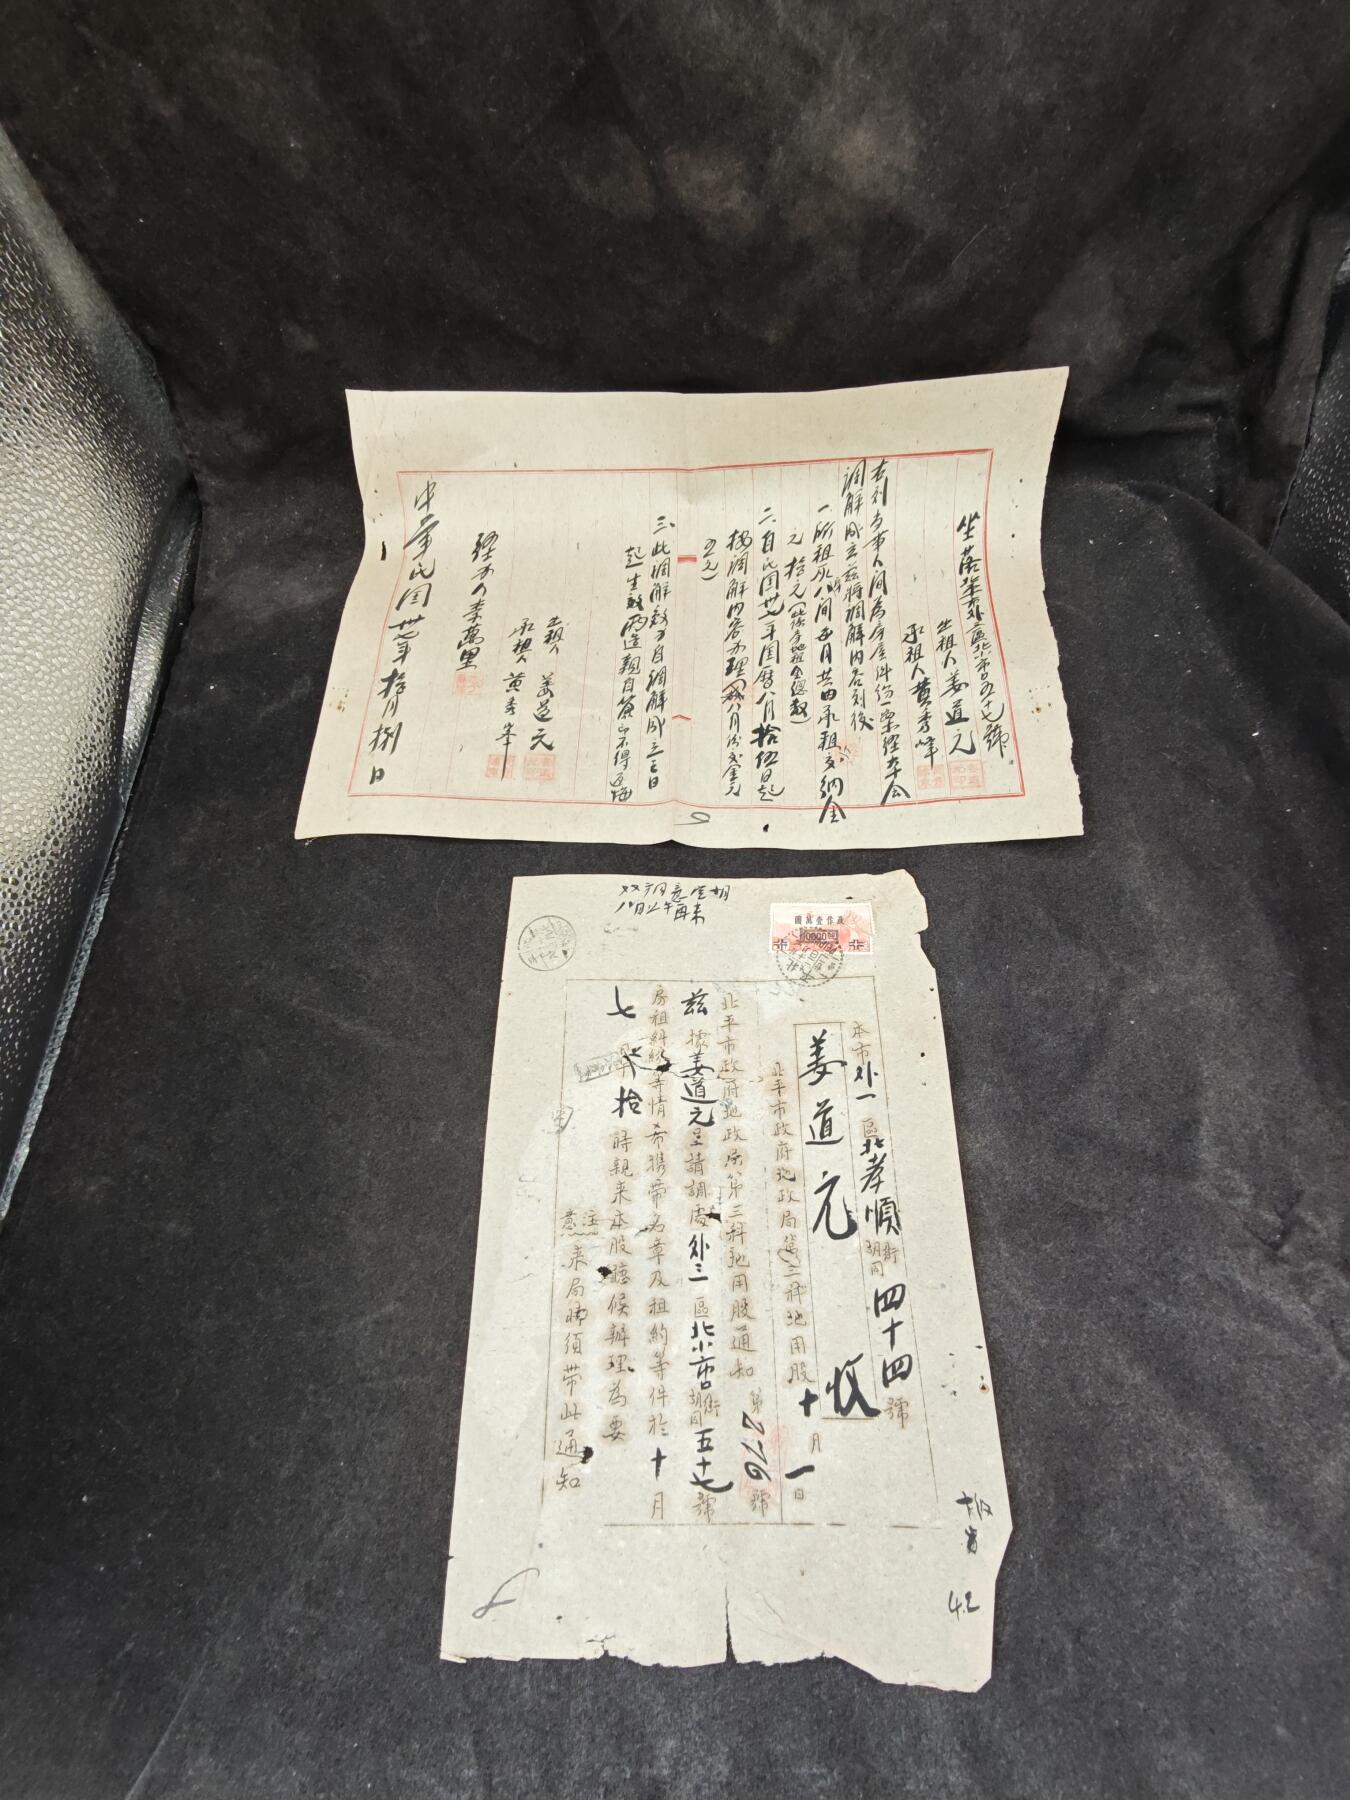 坐落外三區北小市口五十七號
出租人姜道元
承租人黃秀峰
右列當事人間為房屋件份一案經本會
調解成立茲將調解內容列後
一、所租房八間每月共由承租交納金
元拾元(此係房地租金總數)
二、自民國卅七年國曆八月拾伍日起
按調解內容辦理(八月份交金元
五元)
三、此調解效力自調解成立之日
起生效兩造親自簽不得反悔
出租人 姜道元
承租人 黃秀峯
經办人李萬里
中華民國卅七年拾月捌日
双方同意星期
八日上午再来
改作壹萬圓
10000
本市外一區北孝順街胡同四十四號
姜道元 收
北平市政府地政局第三科地用股 十月一日
北平市政府地政局第三科地用股通知 第276號
茲據姜道元呈請調處外三區北小市口街胡同五十七號
房租糾紛等情希攜帶名章及租約等件於十月
七 拾時親来本股聽候辦理為要
注意 来局時須帶此通知
42